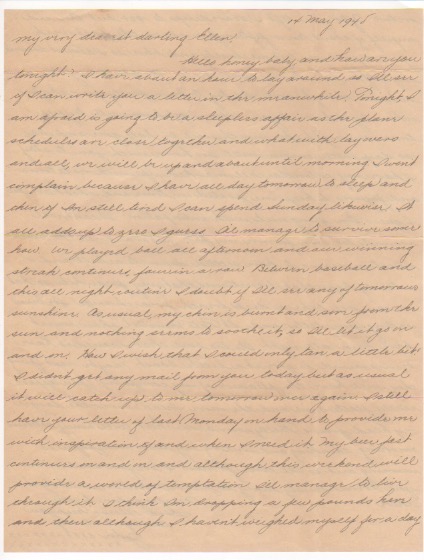 14 May 1945
My very dearest darling Ellen,
Hello honey baby and how are you
tonight? I have about an hour to lay around so I'll see
if I can write you a letter in the meanwhile. Tonight, I
am afraid is going to be a sleepless affair as the plane
schedules are close together and what with layovers
and all, we will be up and about until morning. I won't
complain because I have all day tomorrow to sleep and
then if I'm still tired I can spend Sunday likewise. It
all adds up to zero I guess I'll manage to survive some
how. We played ball all afternoon and our winning
streak continues, four in a row. Between baseball and
this all night routine I doubt if I'll see any of tomorrows
sunshine. As usual, my chin is burnt and sore from the
sun and nothing seems to soothe it, so I'll let it go on
and on. How I wish that I could only tan a little bit!
I didn't get any mail from you today but as usual
it will catch up to me tomorrow once again. I still
have your letter of last Monday on hand to provide me
with inspiration if and when I need it. My beer fast
continues on and on and although this weekend will
provide a world of temptation I'll manage to live
through it. I think I'm dropping a few pounds here
and there although I haven't weighed myself for a day